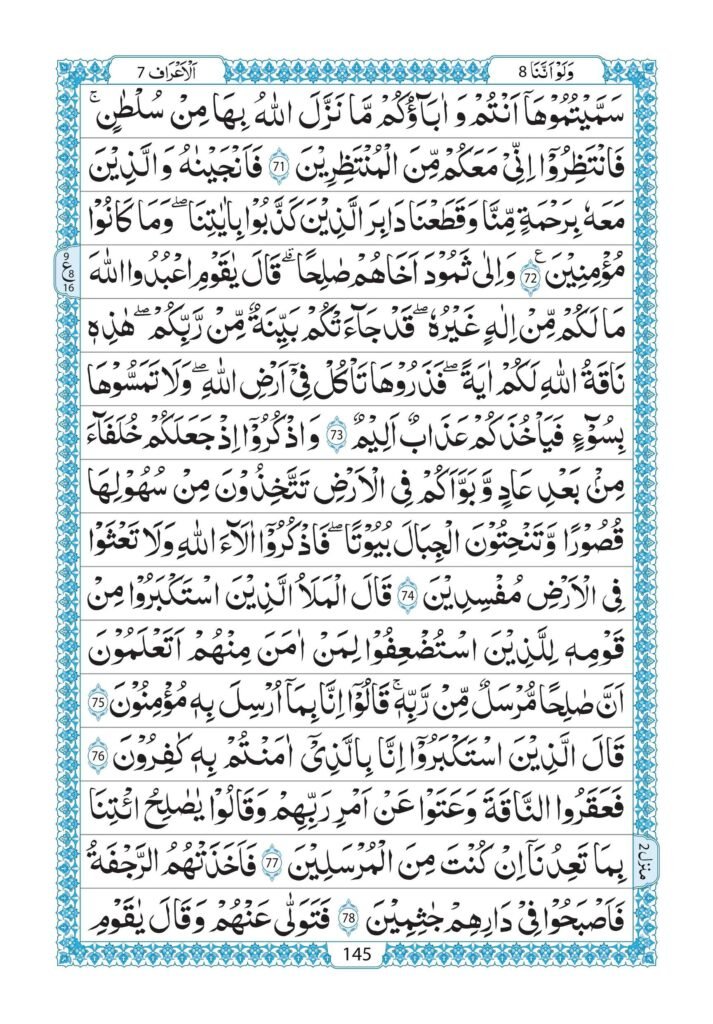 اَلْاَعْرَاف 7
وَلَوْ اَنَّنَا 8
سَمَّيْتُمُوْهَاۤ اَنْتُمْ وَ اٰبَآؤُكُمْ مَّا نَزَّلَ اللّٰهُ بِهَا مِنْ سُلْطٰنٍ ۚ
فَانْتَظِرُوْۤا اِنِّیْ مَعَكُمْ مِّنَ الْمُنْتَظِرِيْنَ 71 فَاَنْجَيْنٰهُ وَ الَّذِيْنَ
مَعَهٗ بِرَحْمَةٍ مِّنَّا وَ قَطَعْنَا دَابِرَ الَّذِيْنَ كَذَّبُوْا بِاٰيٰتِنَا ۖ وَ مَا كَانُوْا
مُؤْمِنِيْنَ ع 72 وَ اِلٰى ثَمُوْدَ اَخَاهُمْ صٰلِحًا ۘ قَالَ يٰقَوْمِ اعْبُدُوا اللّٰهَ
9 ع 8 16
مَا لَكُمْ مِّنْ اِلٰهٍ غَيْرُهٗ ۖ قَدْ جَآءَتْكُمْ بَيِّنَةٌ مِّنْ رَّبِّكُمْ ۖ هٰذِهٖ
نَاقَةُ اللّٰهِ لَكُمْ اٰيَةً ۖ فَذَرُوْهَا تَاْكُلْ فِیْۤ اَرْضِ اللّٰهِ ۖ وَ لَا تَمَسُّوْهَا
بِسُوْٓءٍ فَيَاْخُذَكُمْ عَذَابٌ اَلِيْمٌ 73 وَ اذْكُرُوْۤا اِذْ جَعَلَكُمْ خُلَفَآءَ
مِنْۢ بَعْدِ عَادٍ وَّ بَوَّاَكُمْ فِی الْاَرْضِ تَتَّخِذُوْنَ مِنْ سُهُوْلِهَا
قُصُوْرًا وَّ تَنْحِتُوْنَ الْجِبَالَ بُيُوْتًا ۖ فَاذْكُرُوْۤا اٰلَآءَ اللّٰهِ وَ لَا تَعْثَوْا
فِی الْاَرْضِ مُفْسِدِيْنَ 74 قَالَ الْمَلَاُ الَّذِيْنَ اسْتَكْبَرُوْا مِنْ
قَوْمِهٖ لِلَّذِيْنَ اسْتُضْعِفُوْا لِمَنْ اٰمَنَ مِنْهُمْ اَتَعْلَمُوْنَ
اَنَّ صٰلِحًا مُّرْسَلٌ مِّنْ رَّبِّهٖ ۚ قَالُوْۤا اِنَّا بِمَاۤ اُرْسِلَ بِهٖ مُؤْمِنُوْنَ 75
قَالَ الَّذِيْنَ اسْتَكْبَرُوْۤا اِنَّا بِالَّذِیْۤ اٰمَنْتُمْ بِهٖ كٰفِرُوْنَ 76
فَعَقَرُوا النَّاقَةَ وَ عَتَوْا عَنْ اَمْرِ رَبِّهِمْ وَ قَالُوْا يٰصٰلِحُ ائْتِنَا
بِمَا تَعِدُنَاۤ اِنْ كُنْتَ مِنَ الْمُرْسَلِيْنَ 77 فَاَخَذَتْهُمُ الرَّجْفَةُ
منزل 2
فَاَصْبَحُوْا فِیْ دَارِهِمْ جٰثِمِيْنَ 78 فَتَوَلّٰى عَنْهُمْ وَ قَالَ يٰقَوْمِ
145